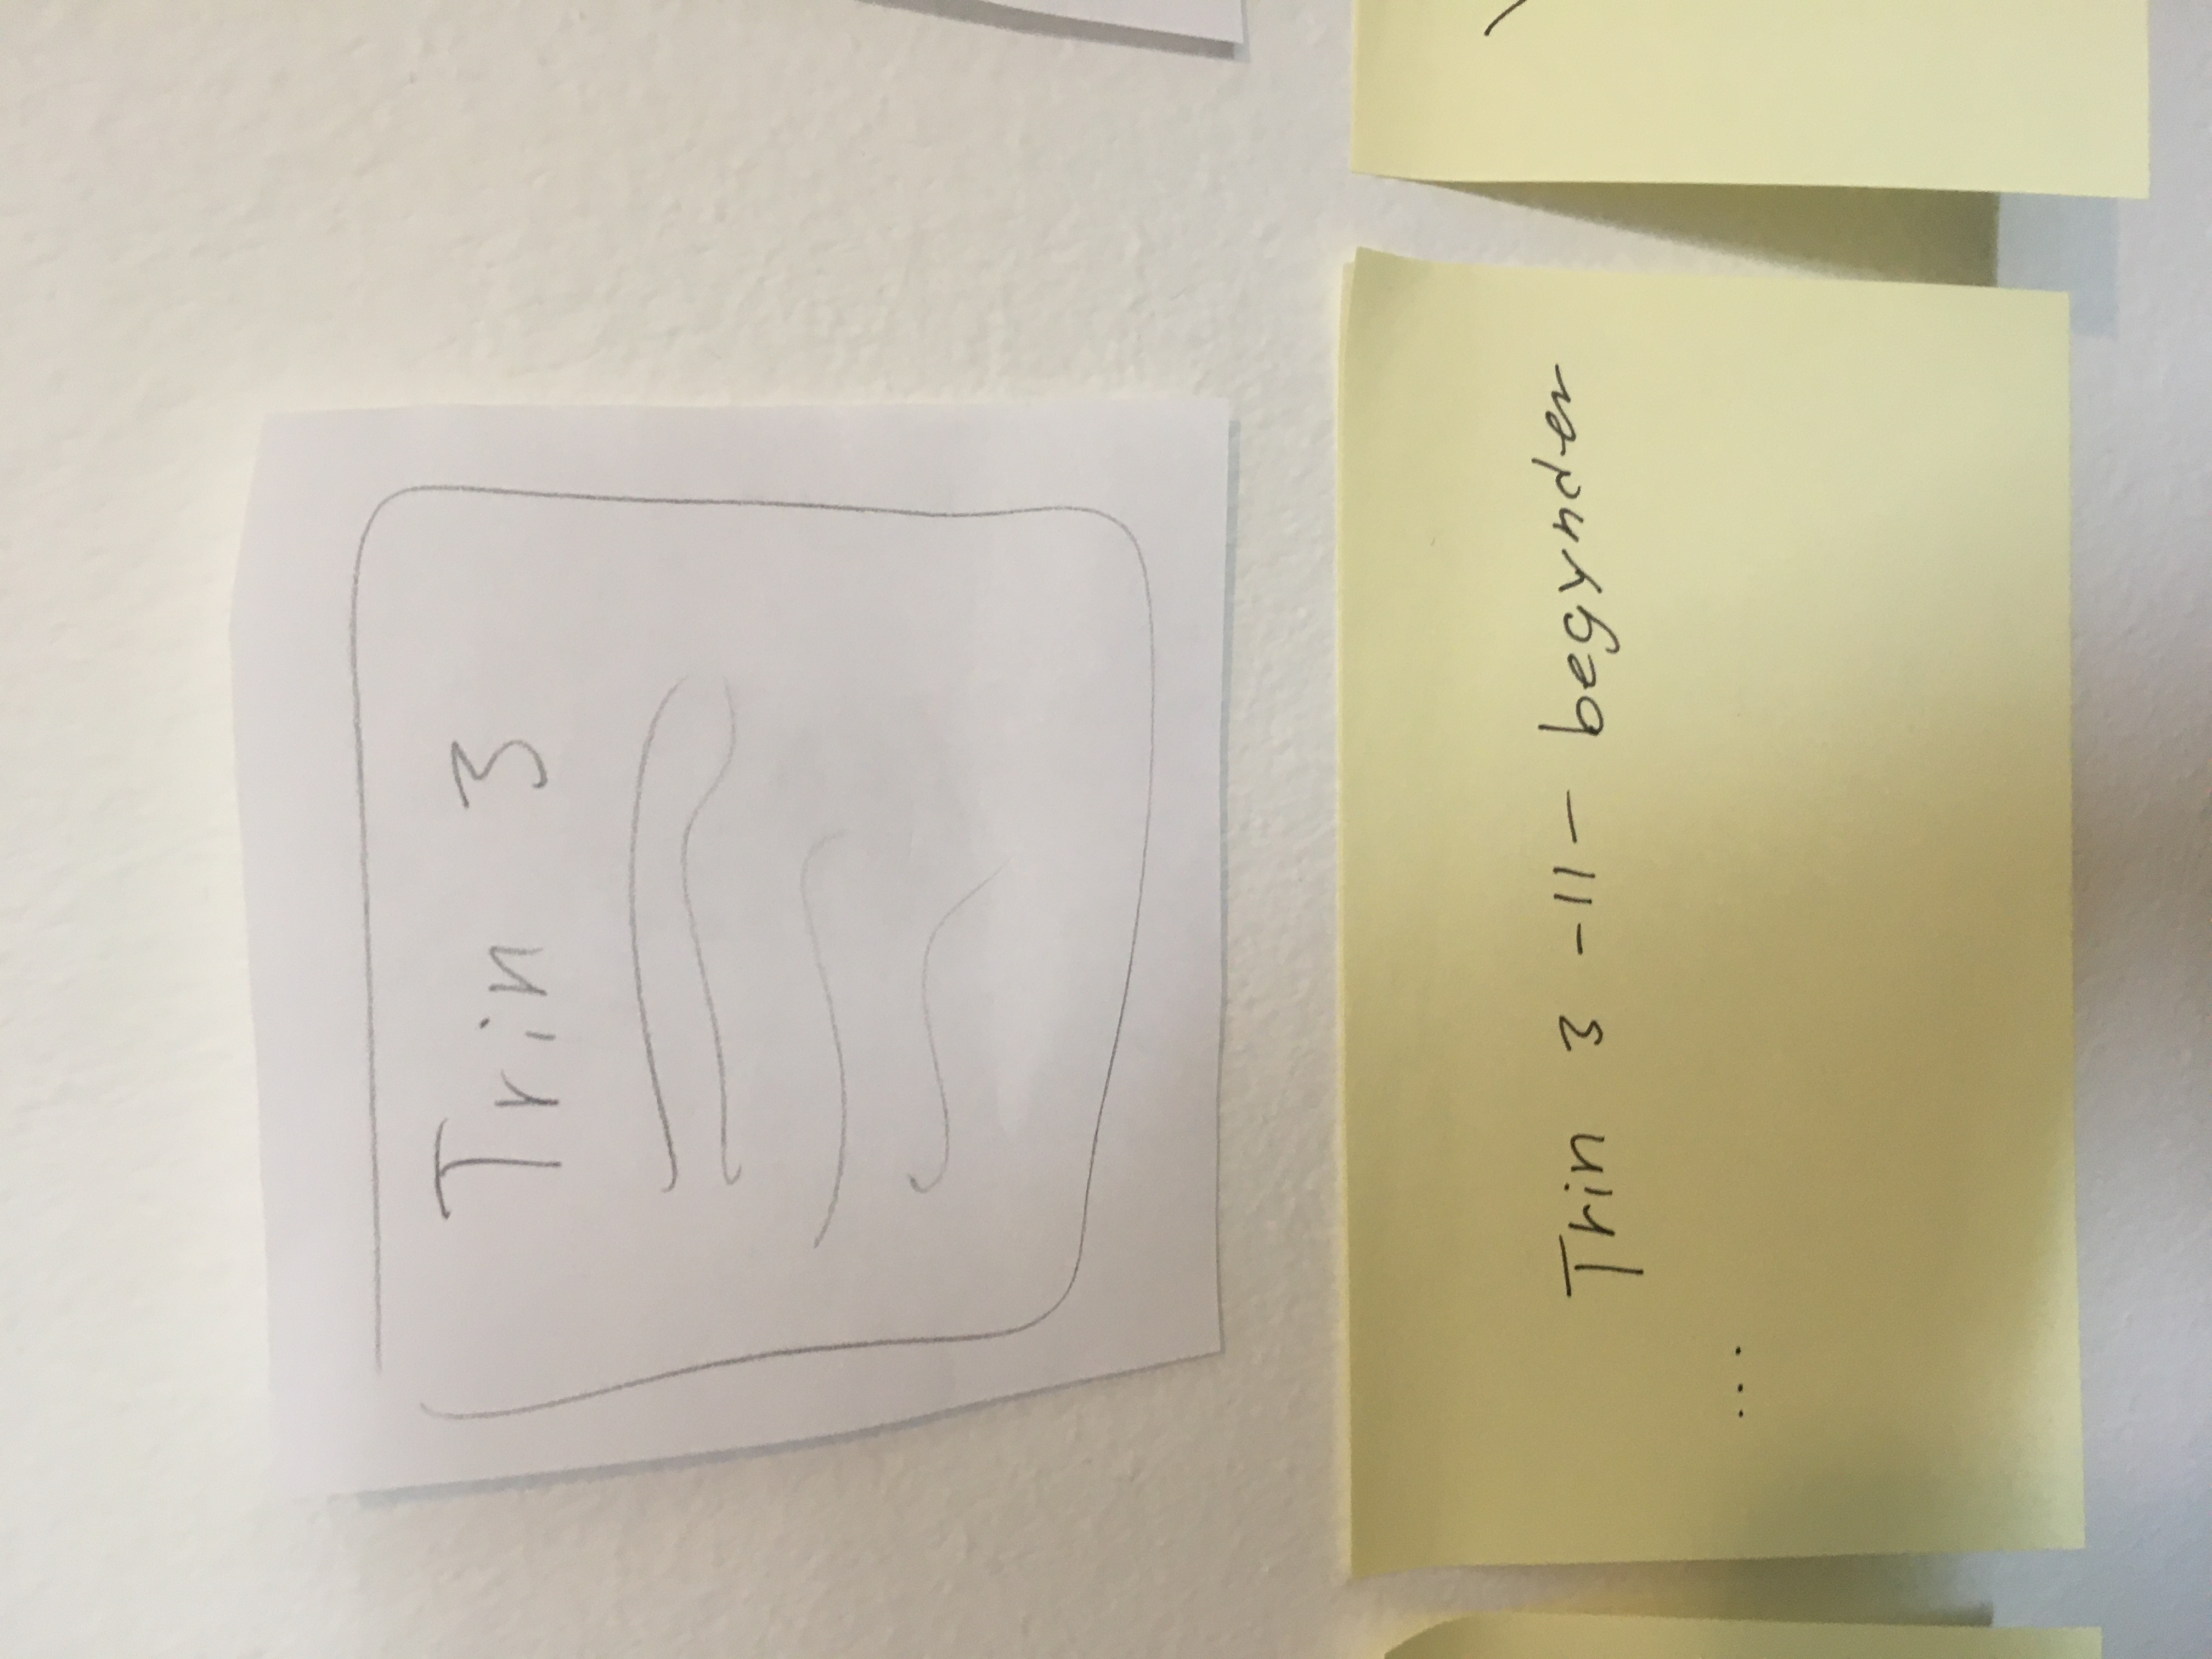 Trin 3
Trin 3 -11- begynder
...